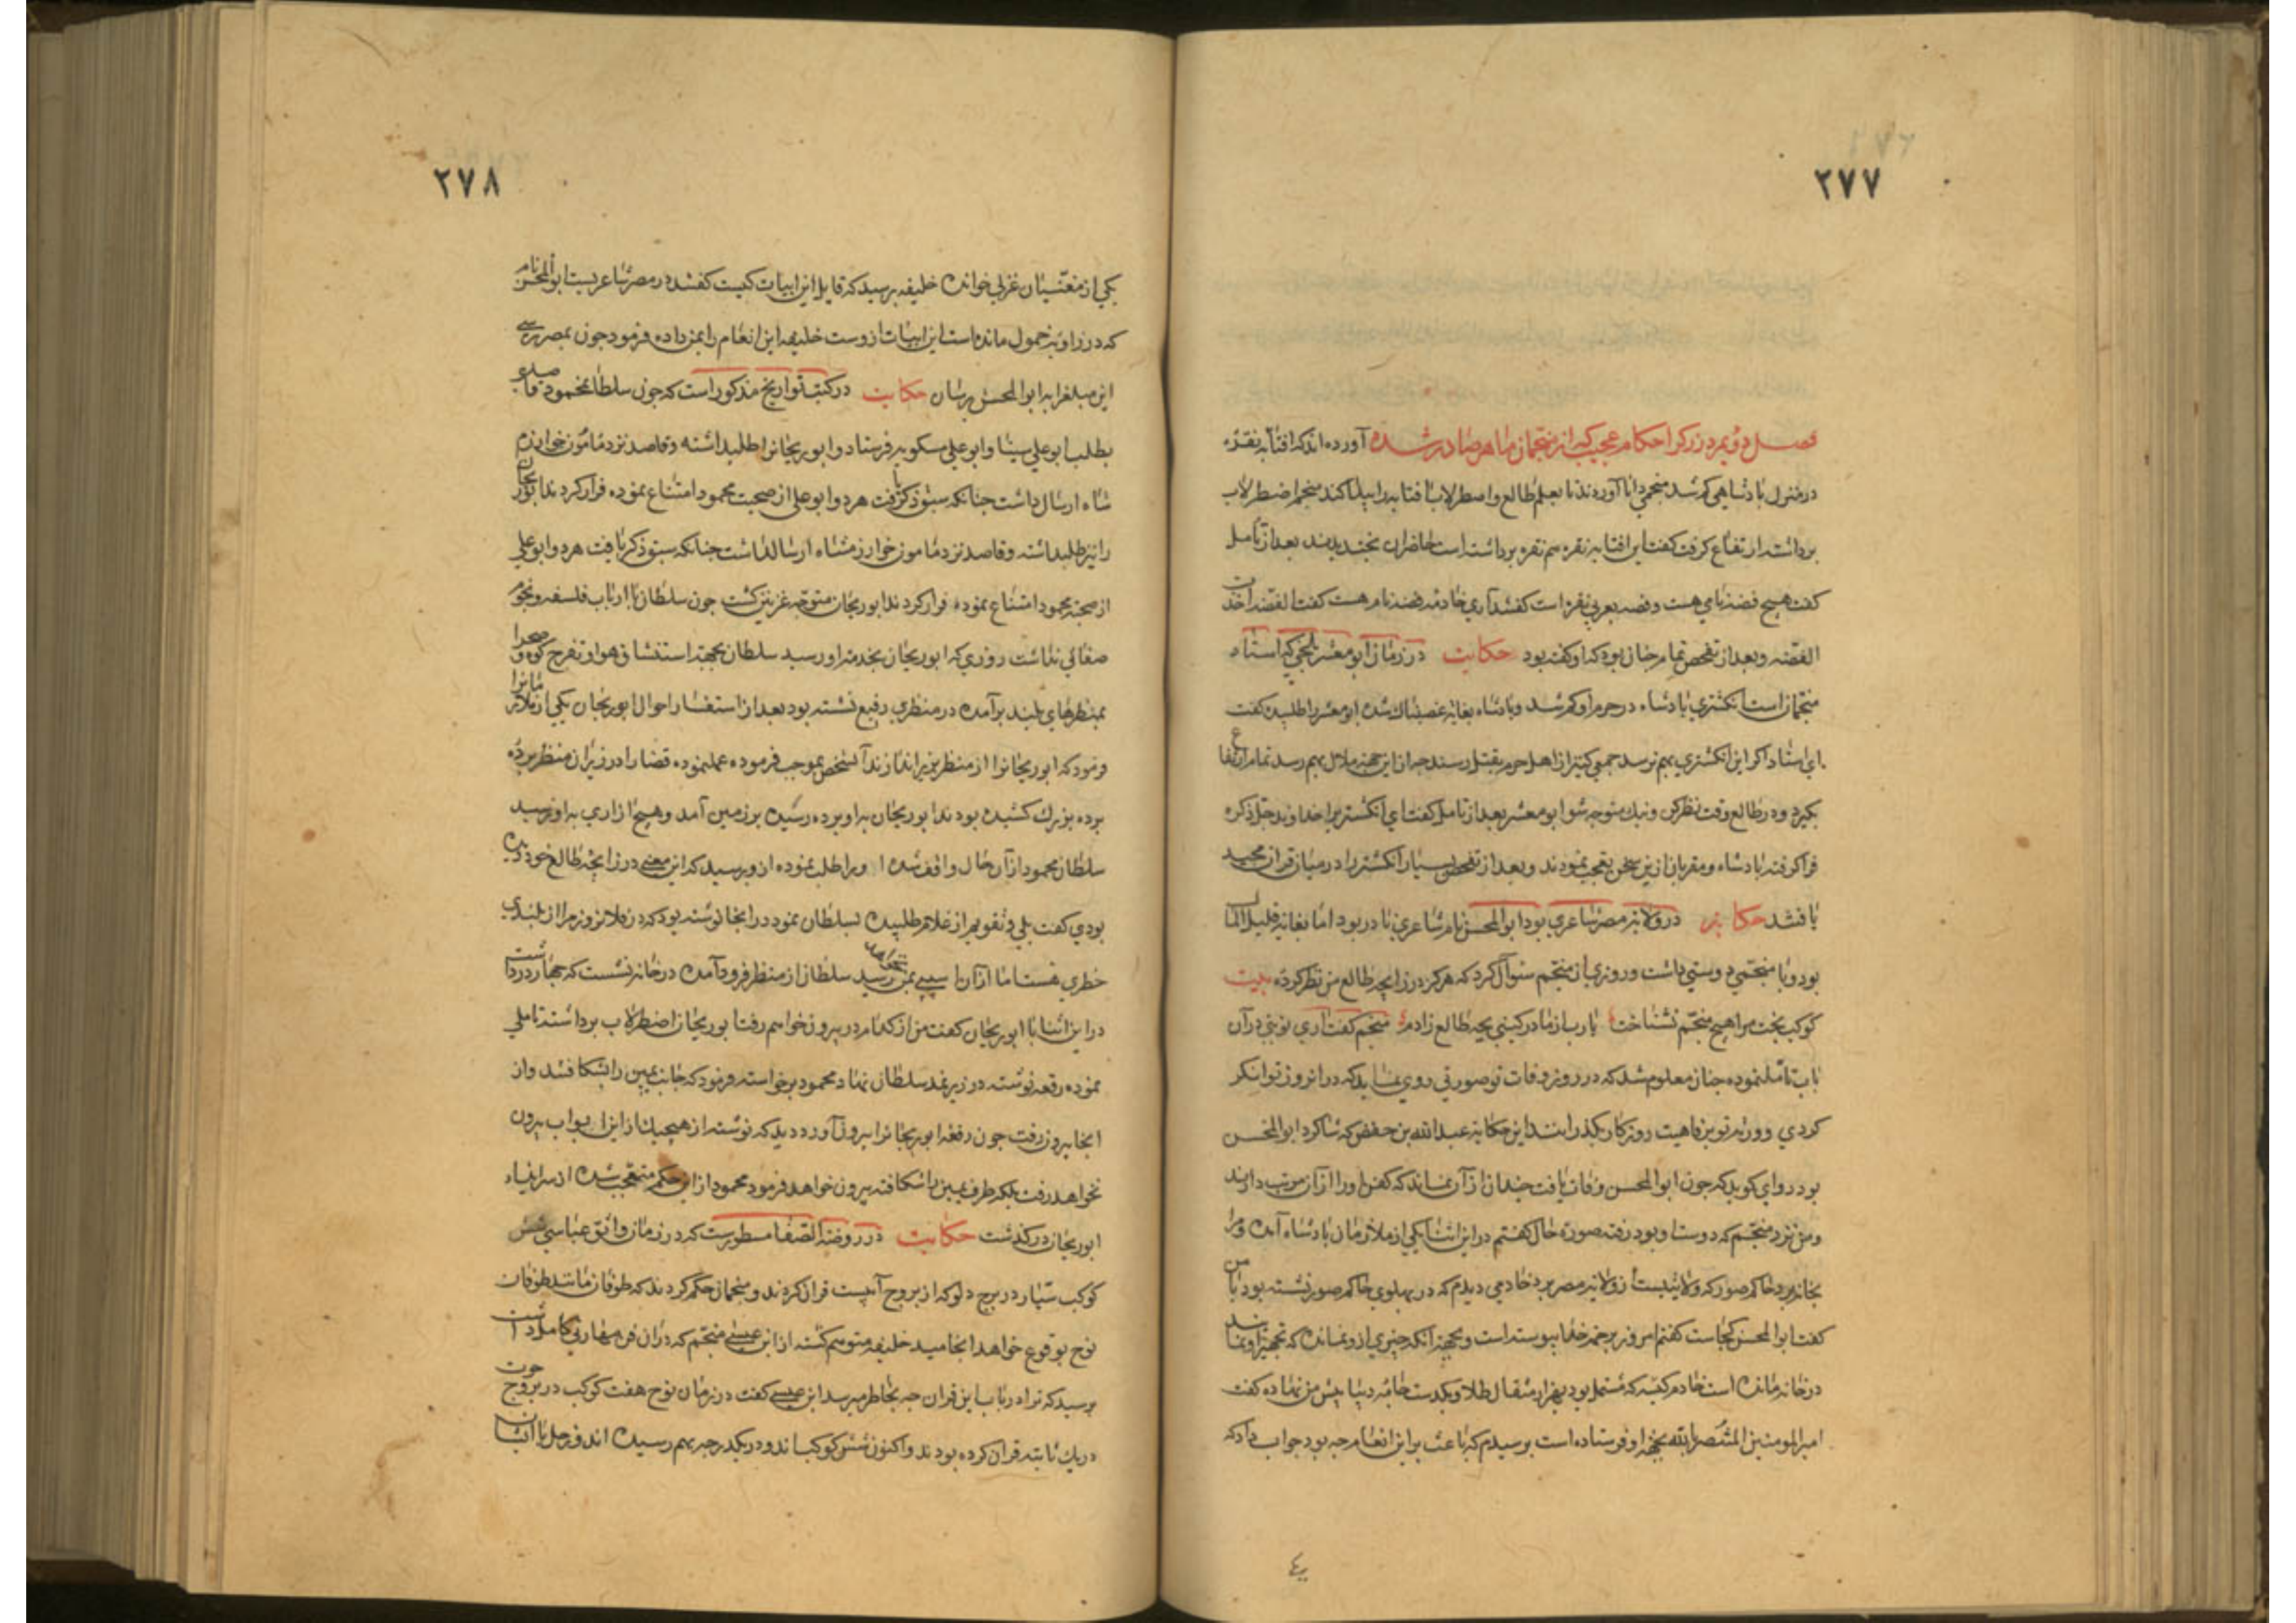 ٢٧٧
فصل دويم در ذكر احكام عجيب كه از منجمان ماهر صادر شده آورده اند كه افتابه نقره
در منزل پادشاهي كم شد منجمي دانا آوردند تا بعلم طالع واصطرلاب افتابه را پيدا كند منجم اضطرلاب
برداشته ارتفاع كرفت كفت اين افتابه نقره هم نقره برداشته است حاضران بخنديدند بعد از تأمل
كفت هيچ فضه نامي هست وفضه بعربي نقره است كفتند آري خادمه فضه نام هست كفت الفضه اخذت
الفضه وبعد از تفحص تمام چنان بود كه او كفته بود حكايت در زمان ابو معشر بلخي كه استاد
منجمان است انكشتري پادشاه در حرم او كم شد وپادشاه بغايه غضبناك شده ابو معشر را طلبيده كفت
اي استاد اكر اين انكشتري بهم نرسد جمعي كثير از اهل حرم بقتل رسند چه از اين جهة ملال بهم رسد تمام ارتفاع
بكير ودر طالع وقت نظر كن ونيك متوجه شو ابو معشر بعد از تأمل كفت اي انكشتر را خداوند جل ذكره
فرا كرفته پادشاه ومقربان ازين سخن تعجب نمودند وبعد از تفحص بسيار انكشتر را در ميان قران مجيد
يافتند حكايت در ولاية مصر شاعري بود ابو المحسن نام شاعري نادر بود اما بغايه قليل المال
بود وبا منجمي دوستي داشت وروزي از منجم سئوال كرد كه هركز در زايچه طالع من نظر كرده بيت
كوكب بخت مرا هيچ منجم نشناخت يا رب از مادر كيتي بچه طالع زادم منجم كفت آري نوبتي در آن
باب تأمل نموده چنان معلوم شد كه در روز وفات تو صورتي روي نمايد كه در آنروز توانكر
كردي وورثه تو بر فاهيت روزكار بكذرانند اين حكايه عبد الله بن حفص كه شاكرد ابو المحسن
بود رواي كويد كه چون ابو المحسن وفات يافت چندان از آن نماند كه كفن او را از آن مرتب دارند
ومن نزد منجم كه دوست او بود رفته صورة حال كفتم در اين اثنا يكي از ملازمان پادشاه آمده ومرا
بخانه برد حاكم صور كه ولايتيست از ولاية مصر برد خادمي ديدم كه در پهلوي حاكم صور نشسته بود با من
كفت ابو المحسن كجاست كفتم امروز برحمة خدا پيوسته است وبجهة آنكه چيزي ازو نمانده كه تجهيز او نمايند
در خانه مانده است خادم كيسه كه مشتمل بود بهزار مثقال طلا ويكدست جامه ديبا پيش من نهاده كفت
امير المومنين المنتصر بالله بجهة او فرستاده است پرسيدم كه باعث بر اين انعام چه بود جواب داد كه
٢٧٨
يكي از مغنيان غزلي خوانده خليفه پرسيد كه قايل اين ابيات كيست كفتند در مصر شاعريست ابو المحسن نام
كه در زاويه خمول مانده است اين ابيات از وست خليفه اين انعام را بمن داده فرمود چون بمصر رسي
اين مبلغ را به ابو المحسن برسان حكايت در كتب تواريخ مذكور است كه چون سلطان محمود قاصدي
بطلب ابو علي سينا وابو علي مسكويه فرستاد وابو ريحان را طلبداشته وقاصد نزد مأمون خوارزم
شاه ارسال داشت چنانكه سبق ذكر يافت هر دو ابو علي از صحبت محمود امتناع نموده فرار كردند ابو ريحان
را نيز طلبداشته وقاصد نزد مامون خوارزمشاه ارسالداشت چنانكه سبق ذكر يافت هر دو ابو علي
از صحبة محمود امتناع نموده فرار كردند ابو ريحان متوجه غزنين كشت چون سلطان با ارباب فلسفه ونجوم
صفائي نداشت روزي كه ابو ريحان بخدمة او رسيد سلطان بجهة استنشاق هوا وتفرج كوه وصحرا
بمنظرهاي بلند برآمده در منظري رفيع نشسته بود بعد از استفسار احوال ابو ريحان يكي از ملازمانرا
فرمود كه ابو ريحانرا از منظر بزير اندازند آنشخص بموجب فرموده عمل نموده قضا را در زير آن منظر پرده
پرده بزرك كشيده بودند ابو ريحان براو پرده رسيده بر زمين آمد وهيچ ازاري به او نرسيد
سلطان محمود از آن حال واقف شده او را طلب نموده از وپرسيد كه اين معني در زايچه طالع خود ديده
بودي كفت بلي وتقويم از غلام طلبيده بسلطان نمود در انجا نوشته بود كه در فلان روز مرا از بلندي
خطري هست اما از آن اسيبي بمن نخواهد رسيد سلطان از منظر فرود آمده در خانه نشست كه چهار در داشت
در اين اثنا با ابو ريحان كفت من از كدام در بيرون خواهم رفت ابو ريحان اضطرلاب برداشته تاملي
نموده رقعه نوشته در زير نمد سلطان نهاد محمود برخواسته فرمود كه جانب يمين را بشكافند واز
انجا بيرون رفت چون رقعه ابو ريحانرا بيرون آورد ديد كه نوشته از هيچيك از اين ابواب بيرون
نخواهد رفت بلكه طرف يمين را شكافته بيرون خواهد فرمود محمود از اين حكم متعجب شده از سر ايذاء
ابو ريحان در كذشت حكايت در روضة الصفا مسطور است كه در زمان واثق عباسي شش
كوكب سيار در برج دلو كه از بروج آبيست قران كردند ومنجمان حكم كردند كه طوفان مانند طوفان
نوح بوقوع خواهد انجاميد خليفه متوهم كشته از ابن عيسي منجم كه در آن فن مهارتي كامل داشت
پرسيد كه ترا در باب اين قران چه بخاطر ميرسد ابن عيسي كفت در زمان نوح هفت كوكب در بروج حوت
در يك ثانيه قران كرده بودند واكنون شش كوكب اند ودر يكدرجه بهم رسيده اند وزحل با انشان